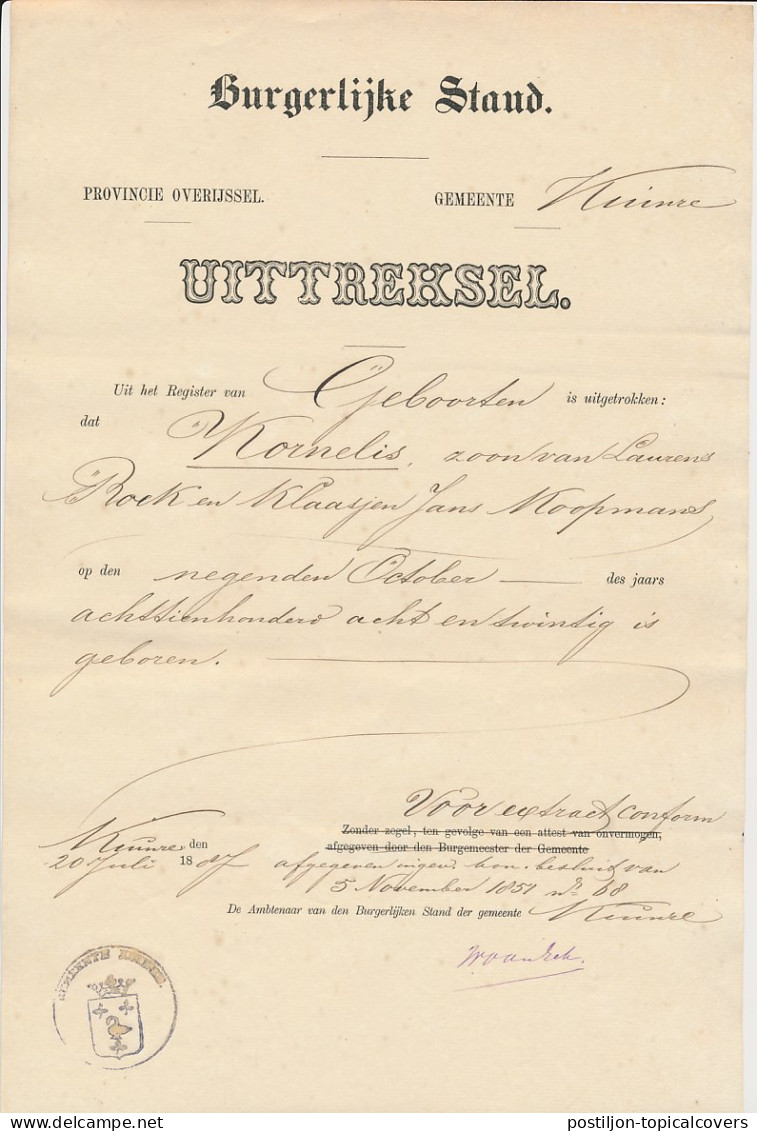 Burgerlijke Stand.
PROVINCIE OVERIJSSEL. GEMEENTE Kuinre
UITTREKSEL.
Uit het Register van Geboorten is uitgetrokken:
dat Kornelis, zoon van Laurens
Roek en Klaasjen Jans Koopmans,
op den negenden October des jaars
achttienhonderd acht en twintig is
geboren.
Voor extract conform
Kuinre den Zonder zegel, ten gevolge van een attest van onvermogen,
20 Juli 1887 afgegeven door den Burgemeester der Gemeente
afgegeven ingev. kon. besluit van
5 November 1851 No 68
De Ambtenaar van den Burgerlijken Stand der gemeente Kuinre
GEMEENTE KUINRE.
postiljon-topicalcovers